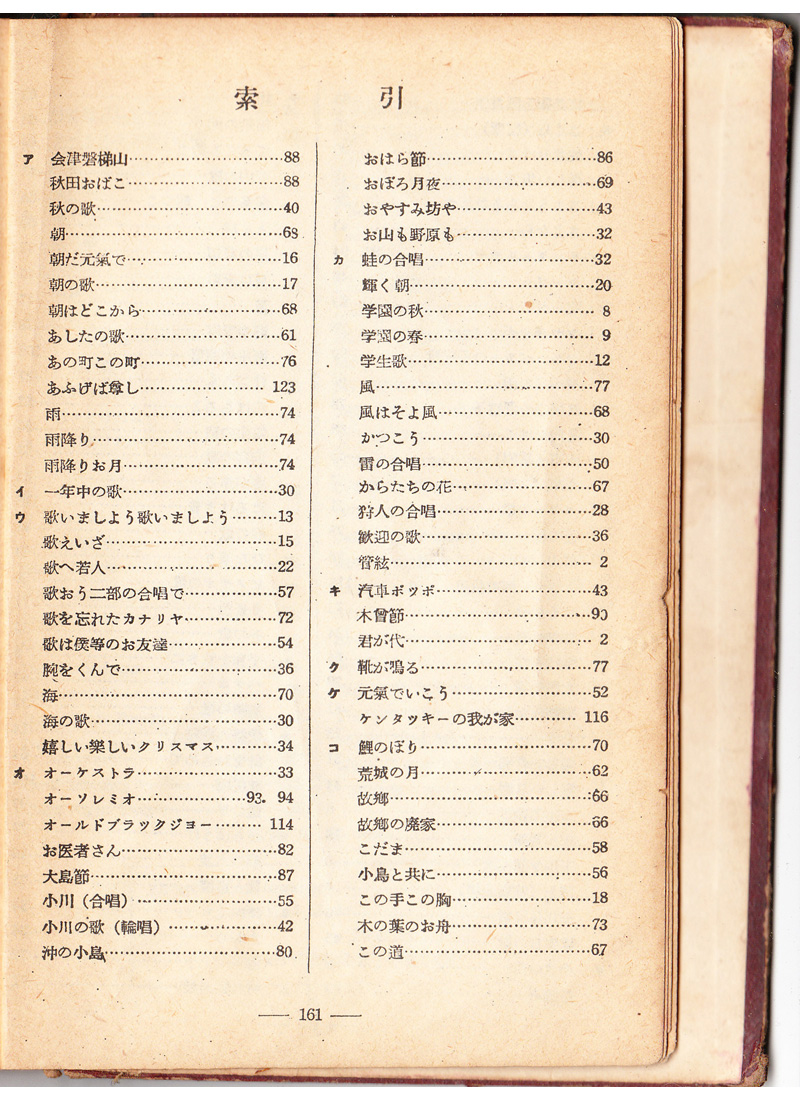 索引
ア 会津磐梯山……88
秋田おばこ……88
秋の歌……40
朝……68
朝だ元氣で……16
朝の歌……17
朝はどこから……68
あしたの歌……61
あの町この町……76
あふげば尊し……123
雨……74
雨降り……74
雨降りお月……74
イ 一年中の歌……30
ウ 歌いましよう歌いましよう……13
歌えいざ……15
歌へ若人……22
歌おう二部の合唱で……57
歌を忘れたカナリヤ……72
歌は僕等のお友達……54
腕をくんで……36
海……70
海の歌……30
嬉しい樂しいクリスマス……34
オ オーケストラ……33
オーソレミオ……93. 94
オールドブラックジヨー……114
お医者さん……82
大島節……87
小川（合唱）……55
小川の歌（輪唱）……42
沖の小島……80
おはら節……86
おぼろ月夜……69
おやすみ坊や……43
お山も野原も……32
カ 蛙の合唱……32
輝く朝……20
学園の秋……8
学園の春……9
学生歌……12
風……77
風はそよ風……68
かつこう……30
雷の合唱……50
からたちの花……67
狩人の合唱……28
歓迎の歌……36
管絃……2
キ 汽車ポツポ……43
木曾節……90
君が代……2
ク 靴が鳴る……77
ケ 元氣でいこう……52
ケンタツキーの我が家……116
コ 鯉のぼり……70
荒城の月……62
故鄉……66
故鄉の廃家……66
こだま……58
小鳥と共に……56
この手この胸……18
木の葉のお舟……73
この道……67
— 161 —